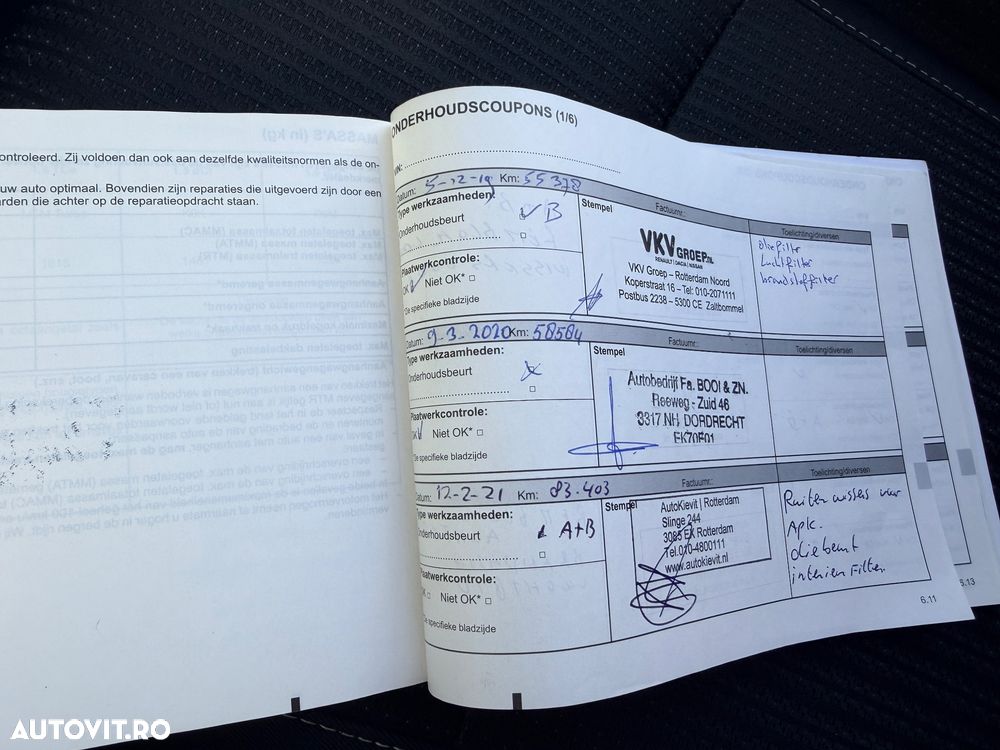 ontroleerd. Zij voldoen dan ook aan dezelfde kwaliteitsnormen als de on-
uw auto optimaal. Bovendien zijn reparaties die uitgevoerd zijn door een
rden die achter op de reparatieopdracht staan.
ONDERHOUDSCOUPONS (1/6)
VIN:
Datum: 5-12-19 Km: 55378
Factuurnr.:
Type werkzaamheden:
Stempel
Toelichting/diversen
Onderhoudsbeurt
B
Plaatwerkcontrole:
OK Niet OK*
De specifieke bladzijde
VKV GROEP.NL
RENAULT | DACIA | NISSAN
VKV Groep – Rotterdam Noord
Koperstraat 16 – Tel: 010-2071111
Postbus 2238 – 5300 CE Zaltbommel
oliefilter
luchtfilter
brandstoffilter
Datum: 9-3-2020 Km: 58584
Factuurnr.:
Type werkzaamheden:
Stempel
Toelichting/diversen
Onderhoudsbeurt
Plaatwerkcontrole:
OK Niet OK*
De specifieke bladzijde
Autobedrijf Fa. BOOI & ZN.
Reeweg - Zuid 46
3317 NH DORDRECHT
Datum: 12-2-21 Km: 83.403
Factuurnr.:
Type werkzaamheden:
Stempel
Toelichting/diversen
Onderhoudsbeurt
A+B
Plaatwerkcontrole:
OK Niet OK*
De specifieke bladzijde
AutoKievit | Rotterdam
Slinge 244
3085 EX Rotterdam
Tel.010-4800111
www.autokievit.nl
Ruiten wissers voor
Apk.
interieur Filter
6.11
6.13
AUTOVIT.RO